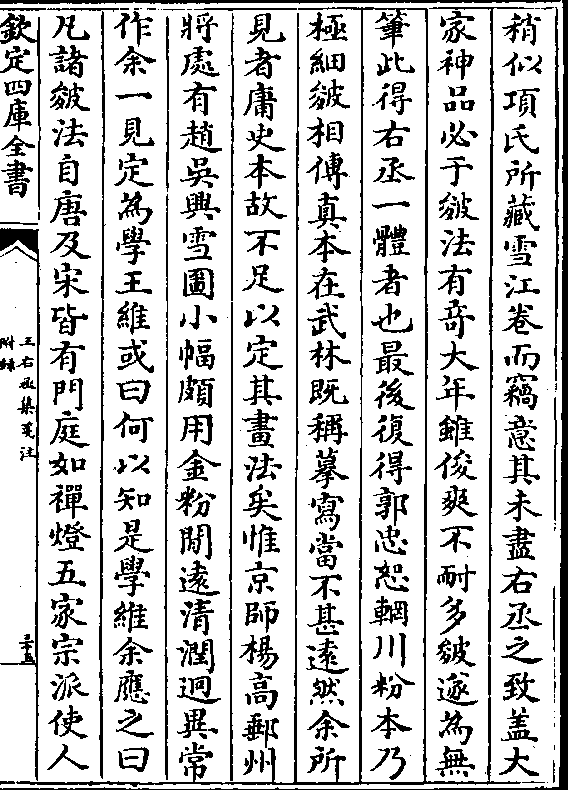 稍似項氏所藏雪江卷而竊意其未盡右丞之致蓋大
家神品必于皴法有奇大年雖俊爽不耐多皴遂為無
筆此得右丞一體者也最後復得郭忠恕輞川粉本乃
極細皴相傳真本在武林既稱摹寫當不甚遠然余所
見者庸史本故不足以定其畫法矣惟京師楊高郵州
將處有趙吳興雪圖小幅頗用金粉閒遠清潤迥異常
作余一見定為學王維或曰何以知是學維余應之曰
凡諸皴法自唐及宋皆有門庭如禪燈五家宗派使人
欽定四庫全書
王右丞集箋注
附錄
三十五